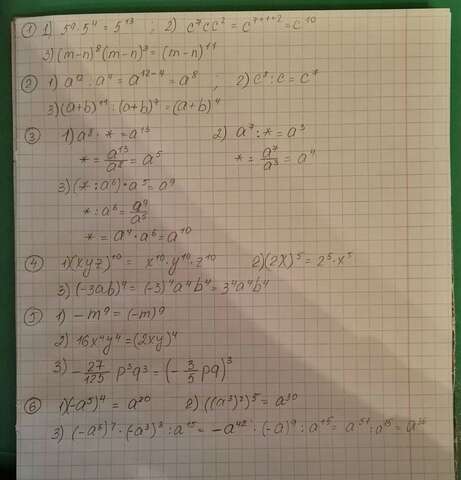 ① 1) 5⁹·5⁴ = 5¹³ ; 2) c⁷cc² = c⁷⁺¹⁺² = c¹⁰
3) (m-n)⁸(m-n)³ = (m-n)¹¹
② 1) a¹² : a⁴ = a¹²⁻⁴ = a⁸ ; 2) c⁸ : c = c⁷
3) (a+b)¹¹ : (a+b)⁷ = (a+b)⁴
③ 1) a⁸ · * = a¹³ 2) a⁷ : * = a³
* = a¹³/a⁸ = a⁵ * = a⁷/a³ = a⁴
3) (* : a⁶) · a⁵ = a⁹
* : a⁶ = a⁹/a⁵
* = a⁴ · a⁶ = a¹⁰
④ 1) (xyz)¹⁰ = x¹⁰·y¹⁰·z¹⁰ 2) (2x)⁵ = 2⁵·x⁵
3) (-3ab)⁴ = (-3)⁴a⁴b⁴ = 3⁴a⁴b⁴
⑤ 1) -m⁹ = (-m)⁹
2) 16x⁴y⁴ = (2xy)⁴
3) -27/125 p³q³ = (-3/5 pq)³
⑥ 1) (-a⁵)⁴ = a²⁰ 2) ((a³)²)⁵ = a³⁰